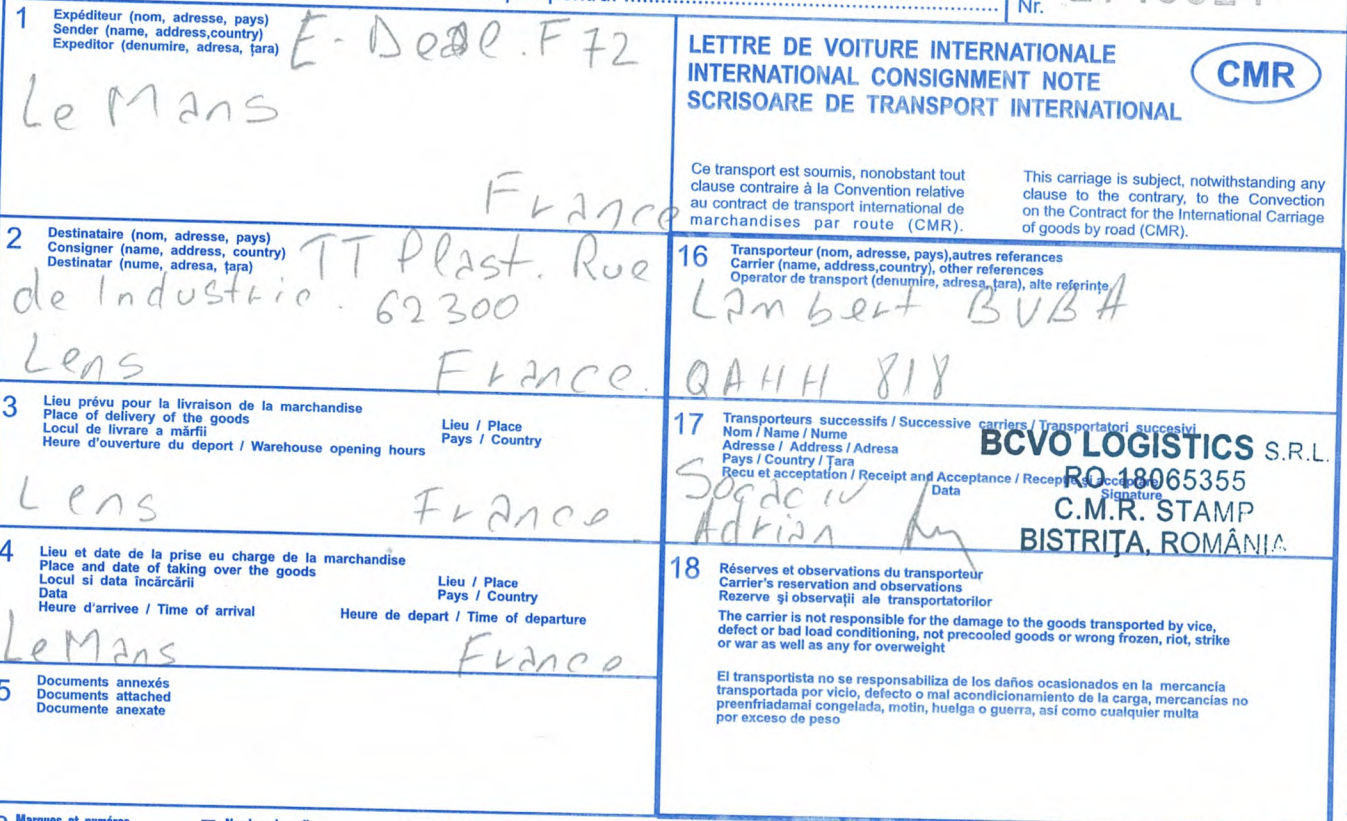 Nr.
1 Expéditeur (nom, adresse, pays)
Sender (name, address,country)
Expeditor (denumire, adresa, țara)
F 72
Le Mans
France
LETTRE DE VOITURE INTERNATIONALE
INTERNATIONAL CONSIGNMENT NOTE
SCRISOARE DE TRANSPORT INTERNATIONAL
CMR
Ce transport est soumis, nonobstant tout
clause contraire à la Convention relative
au contract de transport international de
marchandises par route (CMR).
This carriage is subject, notwithstanding any
clause to the contrary, to the Convection
on the Contract for the International Carriage
of goods by road (CMR).
2 Destinataire (nom, adresse, pays)
Consigner (name, address, country)
Destinatar (nume, adresa, țara)
TT Plast. Rue
de Industrie. 62300
Lens France.
16 Transporteur (nom, adresse, pays),autres referances
Carrier (name, address,country), other references
Operator de transport (denumire, adresa, țara), alte referințe
Lambert BVBA
QAHH 818
3 Lieu prévu pour la livraison de la marchandise
Place of delivery of the goods
Locul de livrare a mărfii
Heure d'ouverture du deport / Warehouse opening hours
Lieu / Place
Pays / Country
Lens France
17 Transporteurs successifs / Successive carriers / Transportatori succesivi
Nom / Name / Nume
Adresse / Address / Adresa
Pays / Country / Țara
Recu et acceptation / Receipt and Acceptance / Recepție și acceptare
Data Signature
Sogaciu
Adrian
BCVO LOGISTICS S.R.L.
RO 18065355
C.M.R. STAMP
BISTRIȚA, ROMÂNIA
4 Lieu et date de la prise eu charge de la marchandise
Place and date of taking over the goods
Locul si data încărcării
Data
Heure d'arrivee / Time of arrival
Lieu / Place
Pays / Country
Heure de depart / Time of departure
Le Mans France
18 Réserves et observations du transporteur
Carrier's reservation and observations
Rezerve și observații ale transportatorilor
The carrier is not responsible for the damage to the goods transported by vice,
defect or bad load conditioning, not precooled goods or wrong frozen, riot, strike
or war as well as any for overweight
El transportista no se responsabiliza de los daños ocasionados en la mercancia
transportada por vicio, defecto o mal acondicionamiento de la carga, mercancías no
preenfriadamai congelada, motin, huelga o guerra, así como cualquier multa
por exceso de peso
5 Documents annexés
Documents attached
Documente anexate